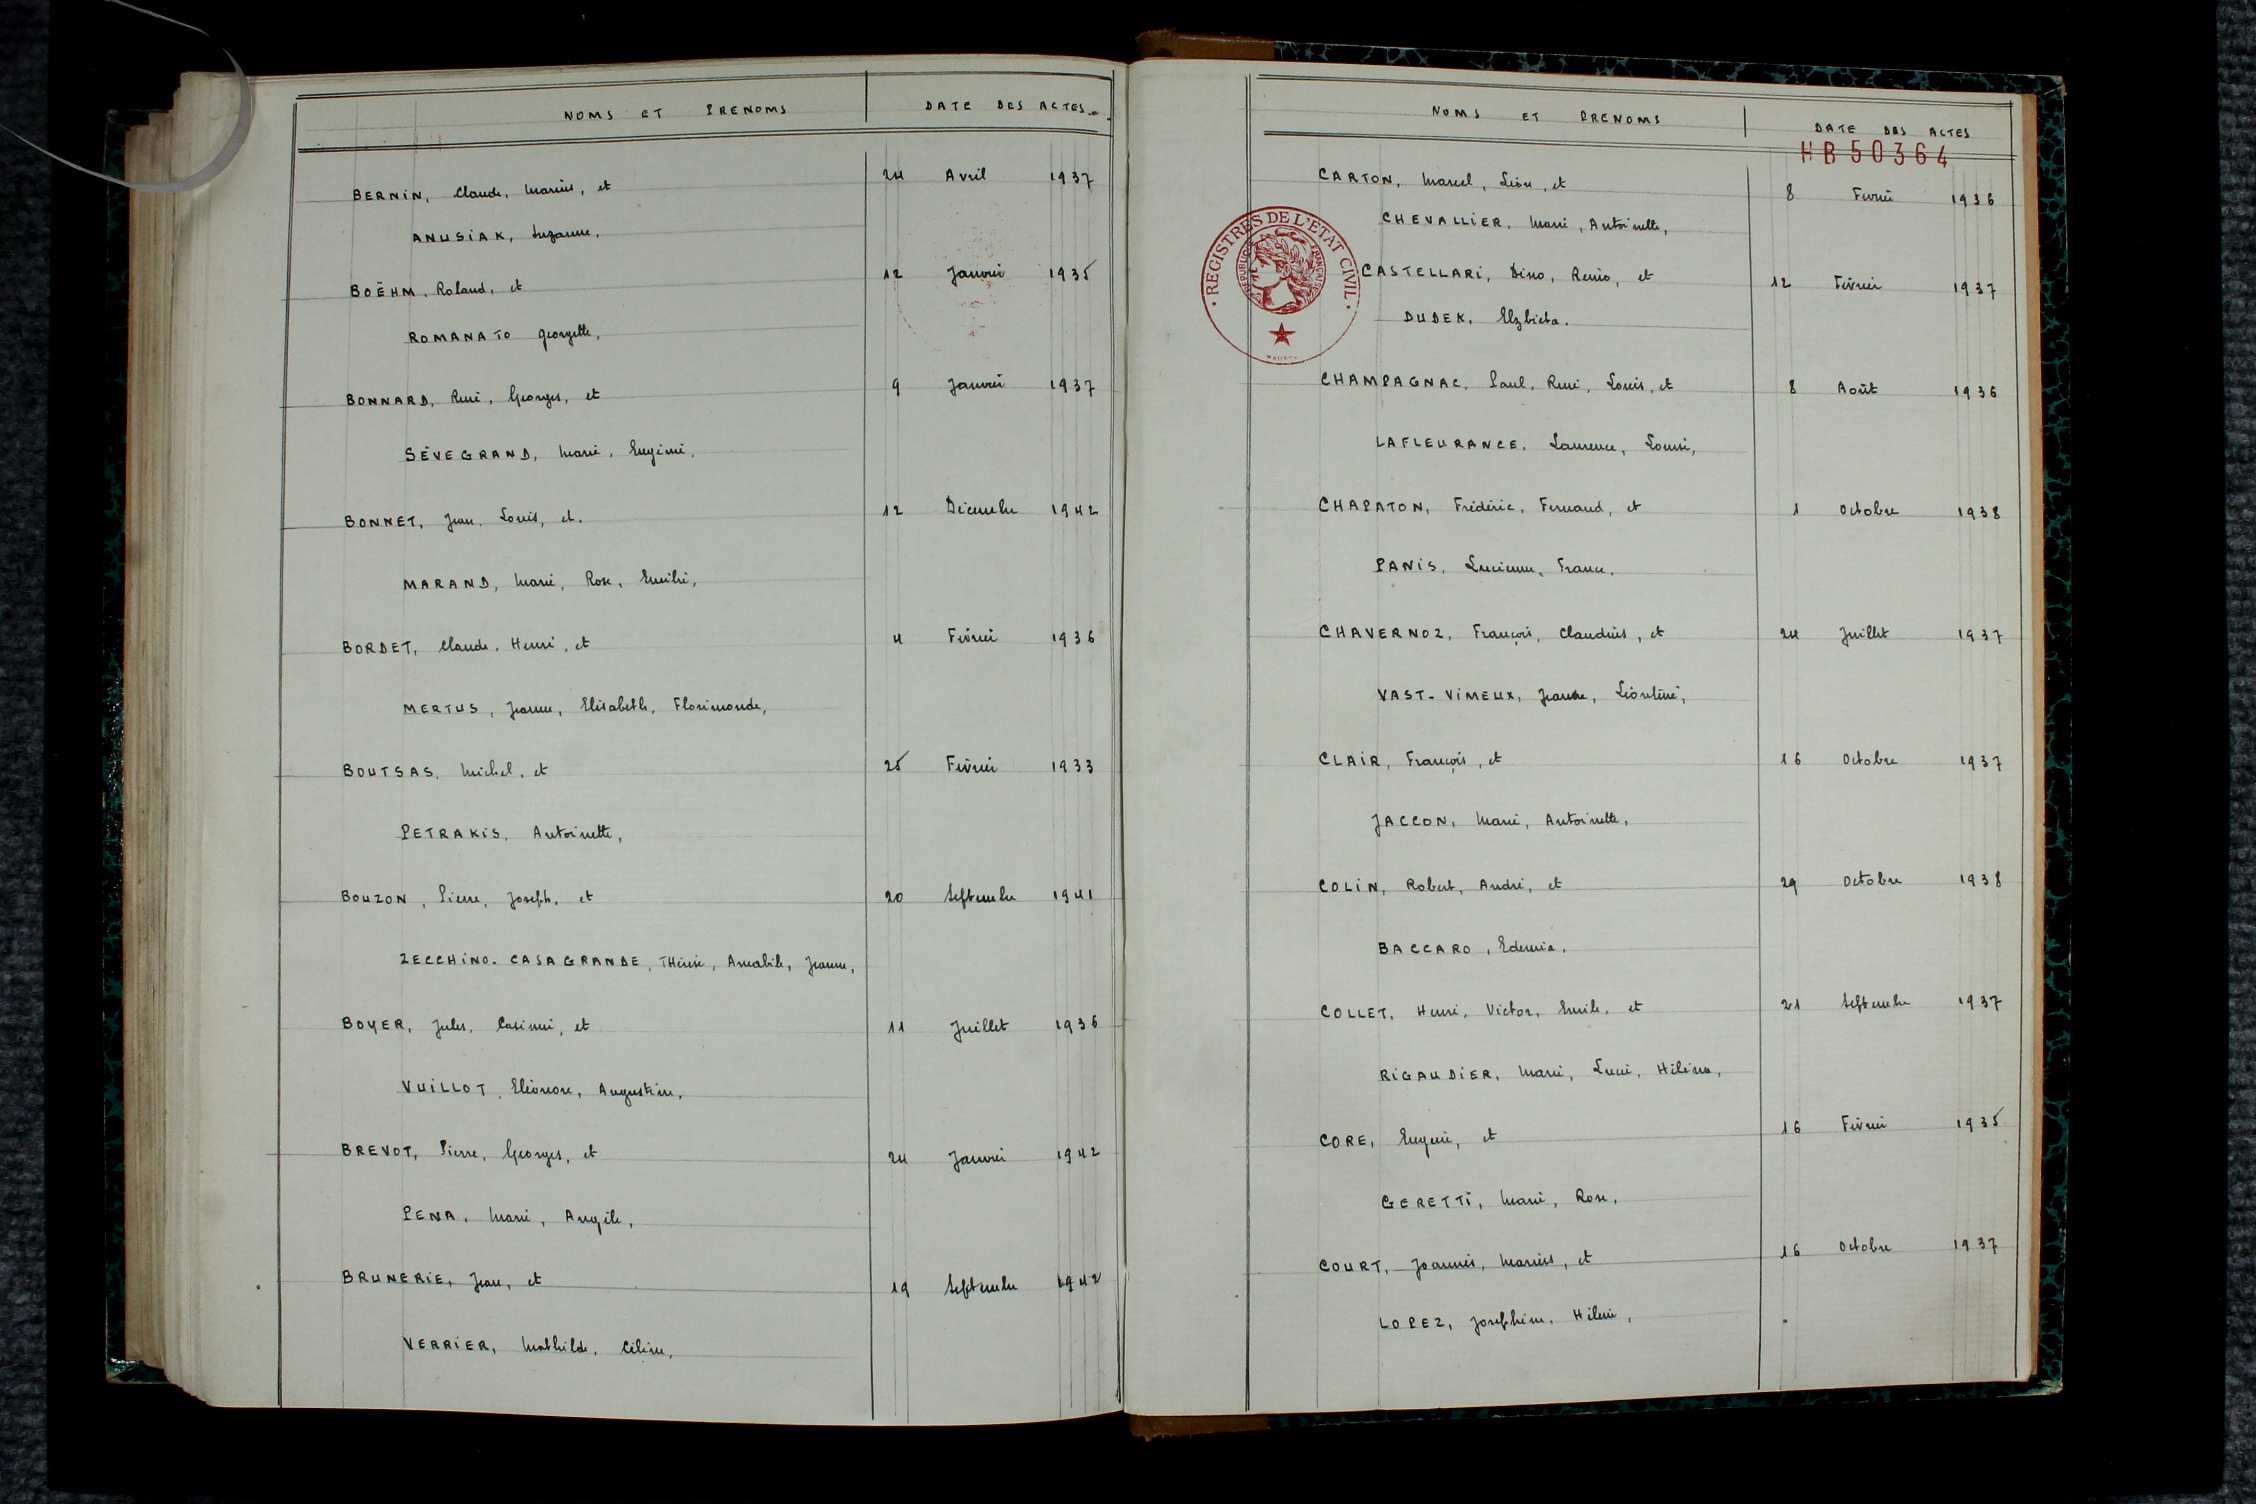 NOMS ET PRENOMS DATE DES ACTES.
BERNIN, Claude, Marius, et 24 Avril 1937
ANUSIAK, Suzanne,
BOËHM, Roland, et 12 Janvier 1935
ROMANATO Georgette,
BONNARD, René, Georges, et 9 Janvier 1937
SÈVEGRAND, Marie, Eugénie,
BONNET, Jean, Louis, et. 12 Décembre 1942
MARAND, Marie, Rose, Emilie,
BORDET, Claude, Henri, et 4 Février 1936
MERTUS, Jeanne, Elisabeth, Florimonde,
BOUTSAS, Michel, et 25 Février 1933
PETRAKIS, Antoinette,
BOUZON, Pierre, Joseph, et 20 Septembre 1941
ZECCHINO-CASAGRANDE, Thérèse, Amabile, Jeanne,
BOYER, Jules, Casimir, et 11 Juillet 1936
VUILLOT, Eléonore, Augustine,
BREVOT, Pierre, Georges, et 24 Janvier 1942
PENA, Marie, Angèle,
BRUNERIE, Jean, et 19 Septembre 1942
VERRIER, Mathilde, Céline,
NOMS ET PRENOMS DATE DES ACTES
HB50364
CARTON, Marcel, Léon, et 8 Février 1936
CHEVALLIER, Marie, Antoinette,
REGISTRES DE L'ETAT CIVIL
REPUBLIQUE FRANÇAISE
CASTELLARI, Dino, Remo, et 12 Février 1937
DUDEK, Elzbieta.
CHAMPAGNAC, Paul, René, Louis, et 8 Août 1936
LAFLEURANCE, Laurence, Louise,
CHAPATON, Frédéric, Fernand, et 1 Octobre 1938
PANIS, Lucienne, France.
CHAVERNOZ, François, Claudius, et 24 Juillet 1937
VAST-VIMEUX, Jeanne, Léontine,
CLAIR, François, et 16 Octobre 1937
JACCON, Marie, Antoinette,
COLIN, Robert, André, et 29 Octobre 1938
BACCARO, Edemia,
COLLET, Henri, Victor, Emile, et 21 Septembre 1937
RIGAUDIER, Marie, Lucie, Héléna,
CORE, Eugène, et 16 Février 1935
GERETTI, Marie, Rose,
COURT, Joannès, Marius, et 16 Octobre 1937
LOPEZ, Joséphine, Hélène,